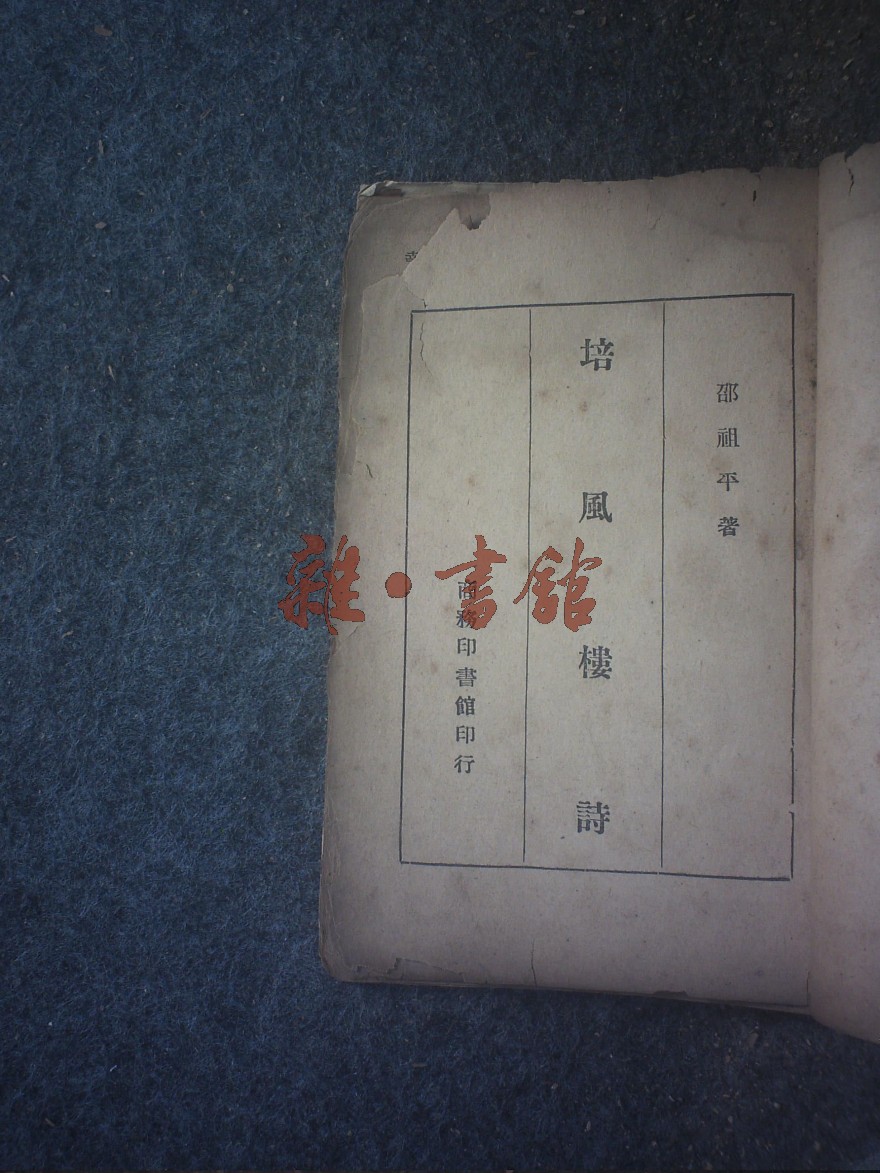 邵祖平著
培風樓詩
商務印書館印行
雜·書館